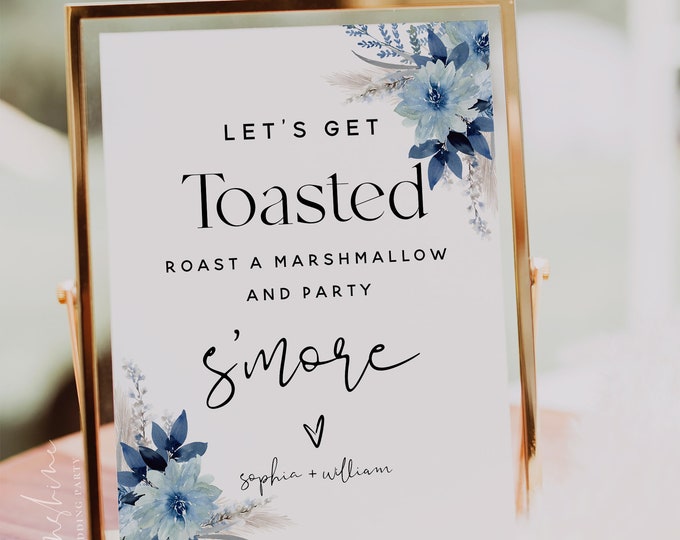 LET'S GET
Toasted
ROAST A MARSHMALLOW
AND PARTY
s'more
sophia + william
WEDDING PARTY